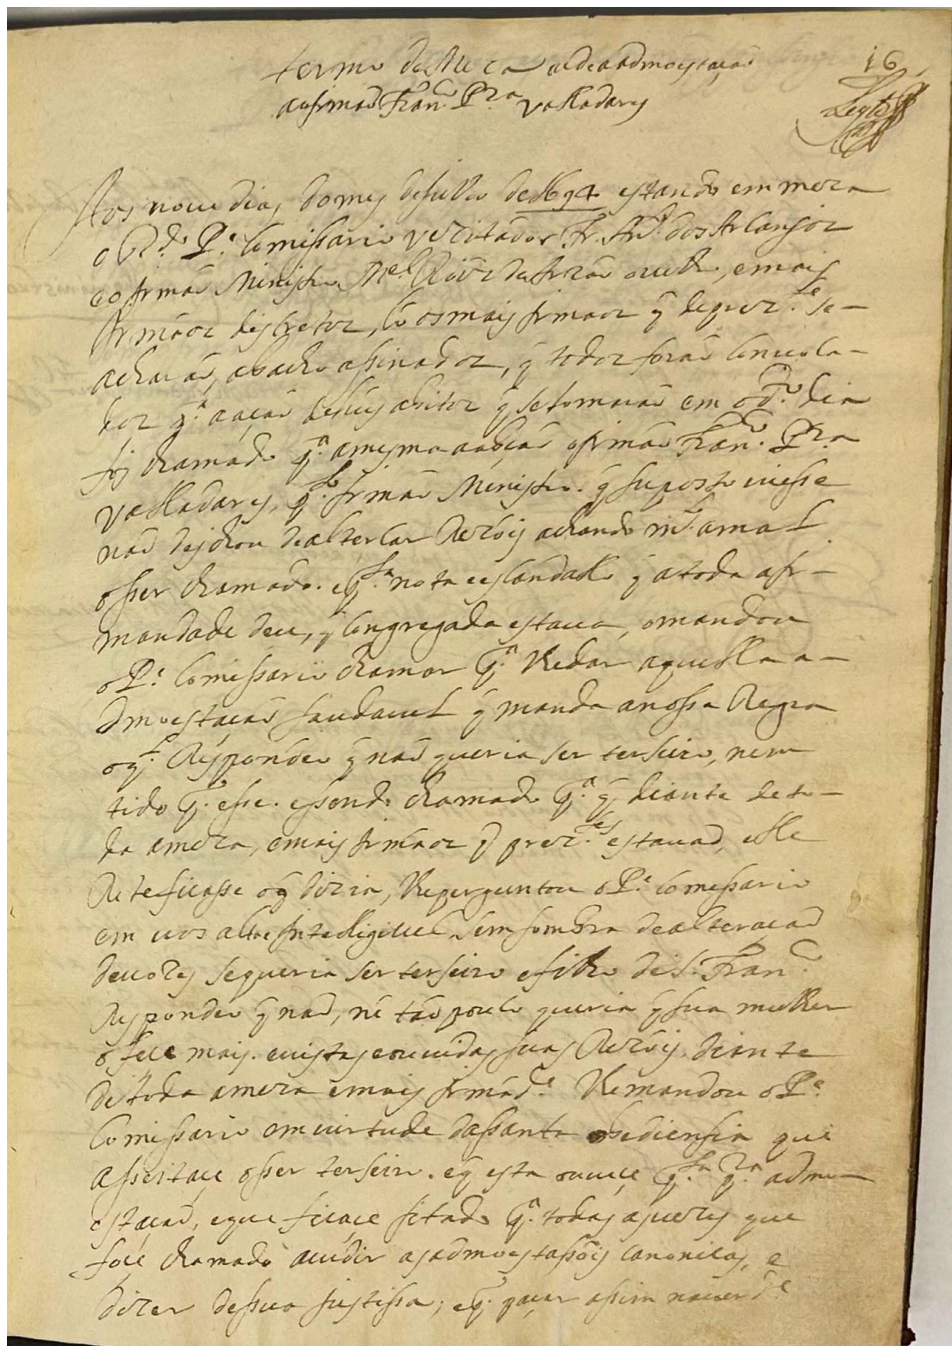 termo da Meza e de admoestação
ao Irmão Fran.co Pr.a Valladares
16
Aos noue dias do mes de Julho de 1694 estando em meza
o P.e Comissario Vezitador Fr. An.to dos Arcanjos
e o Irmão Ministro M.el e mais
Irmãos discretos, Co os mais Irmãos q̃ de prez.te se
acharão, abacho asinados, q̃ todos forão conuoca-
dos p.a a ação destes abitos q̃ se tomarão em o d.o dia
foj chamado p.a a mesma o Irmão Fran.co Pr.a
Valladares, p.lo Irmão Ministro. q̃ suposto uiesse
não deichou de altercar Rezõis achando m.to a mal
o sser chamado. e p.la nota e escandallo q̃ a toda a Ir-
mandade deu, q̃ Congregada estaua, o mandou
o P.e Comissario chamar p.a lhe dar aquella a-
dmoestação saudauel q̃ manda a nossa Regra
o q.l Respondeo q̃ não queria ser terseiro, nem
tido p.r esse. e ssendo chamado p.a q̃ diante de to-
da a meza, e mais Irmaos q̃ prez.tes estauão, elle
Reteficasse o q̃ dizia, lhe perguntou o P.e Comessario
em uos alta Intelligiuel, sem sombra de alteração
de uozes se queria ser terseiro e filho de S. Fran.co
Respondeo q̃ não, nẽ tão pouco queria q̃ sua mulher
o fose mais. e uistas e ouuidas suas Rezõis diante
de toda a meza e mais Irmãd.e lhe mandou o P.e
Comissario em uirtude da ssanta obediensia que
asseitaçe o sser terseiro. e q̃ esta ouuçe p.la pr.a admo-
estação, e que ficace sitado p.a todas as uezes que
foçe chamado acudir as admoestassõis canonicas, e
dizer de sua justissa; e p.r pasar assim na uerd.e